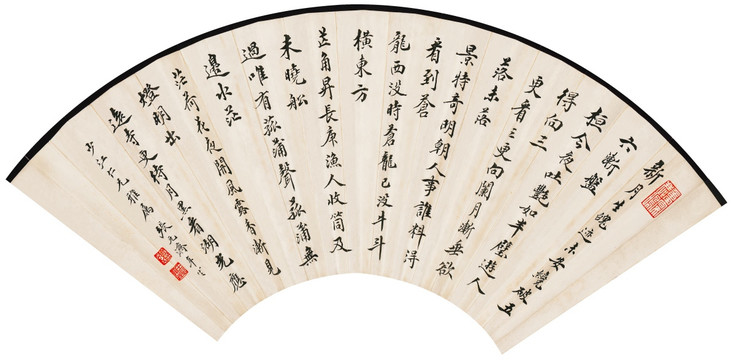 新月生魄迹未安纔破五
六漸盤
桓今夜吐艷如半璧遊人
得向三
更看三更向闌月漸垂欲
落未落
景特奇明朝人事誰料得
看到蒼
龍西没時蒼龍已没牛斗
橫東方
芒角昇長庚漁人收筒及
未曉船
過唯有菰蒲聲菰蒲無
邊水茫
茫荷花夜開風露香漸見
燈明出
遠寺更待月黑看湖光應
少江仁兄雅屬 張元濟